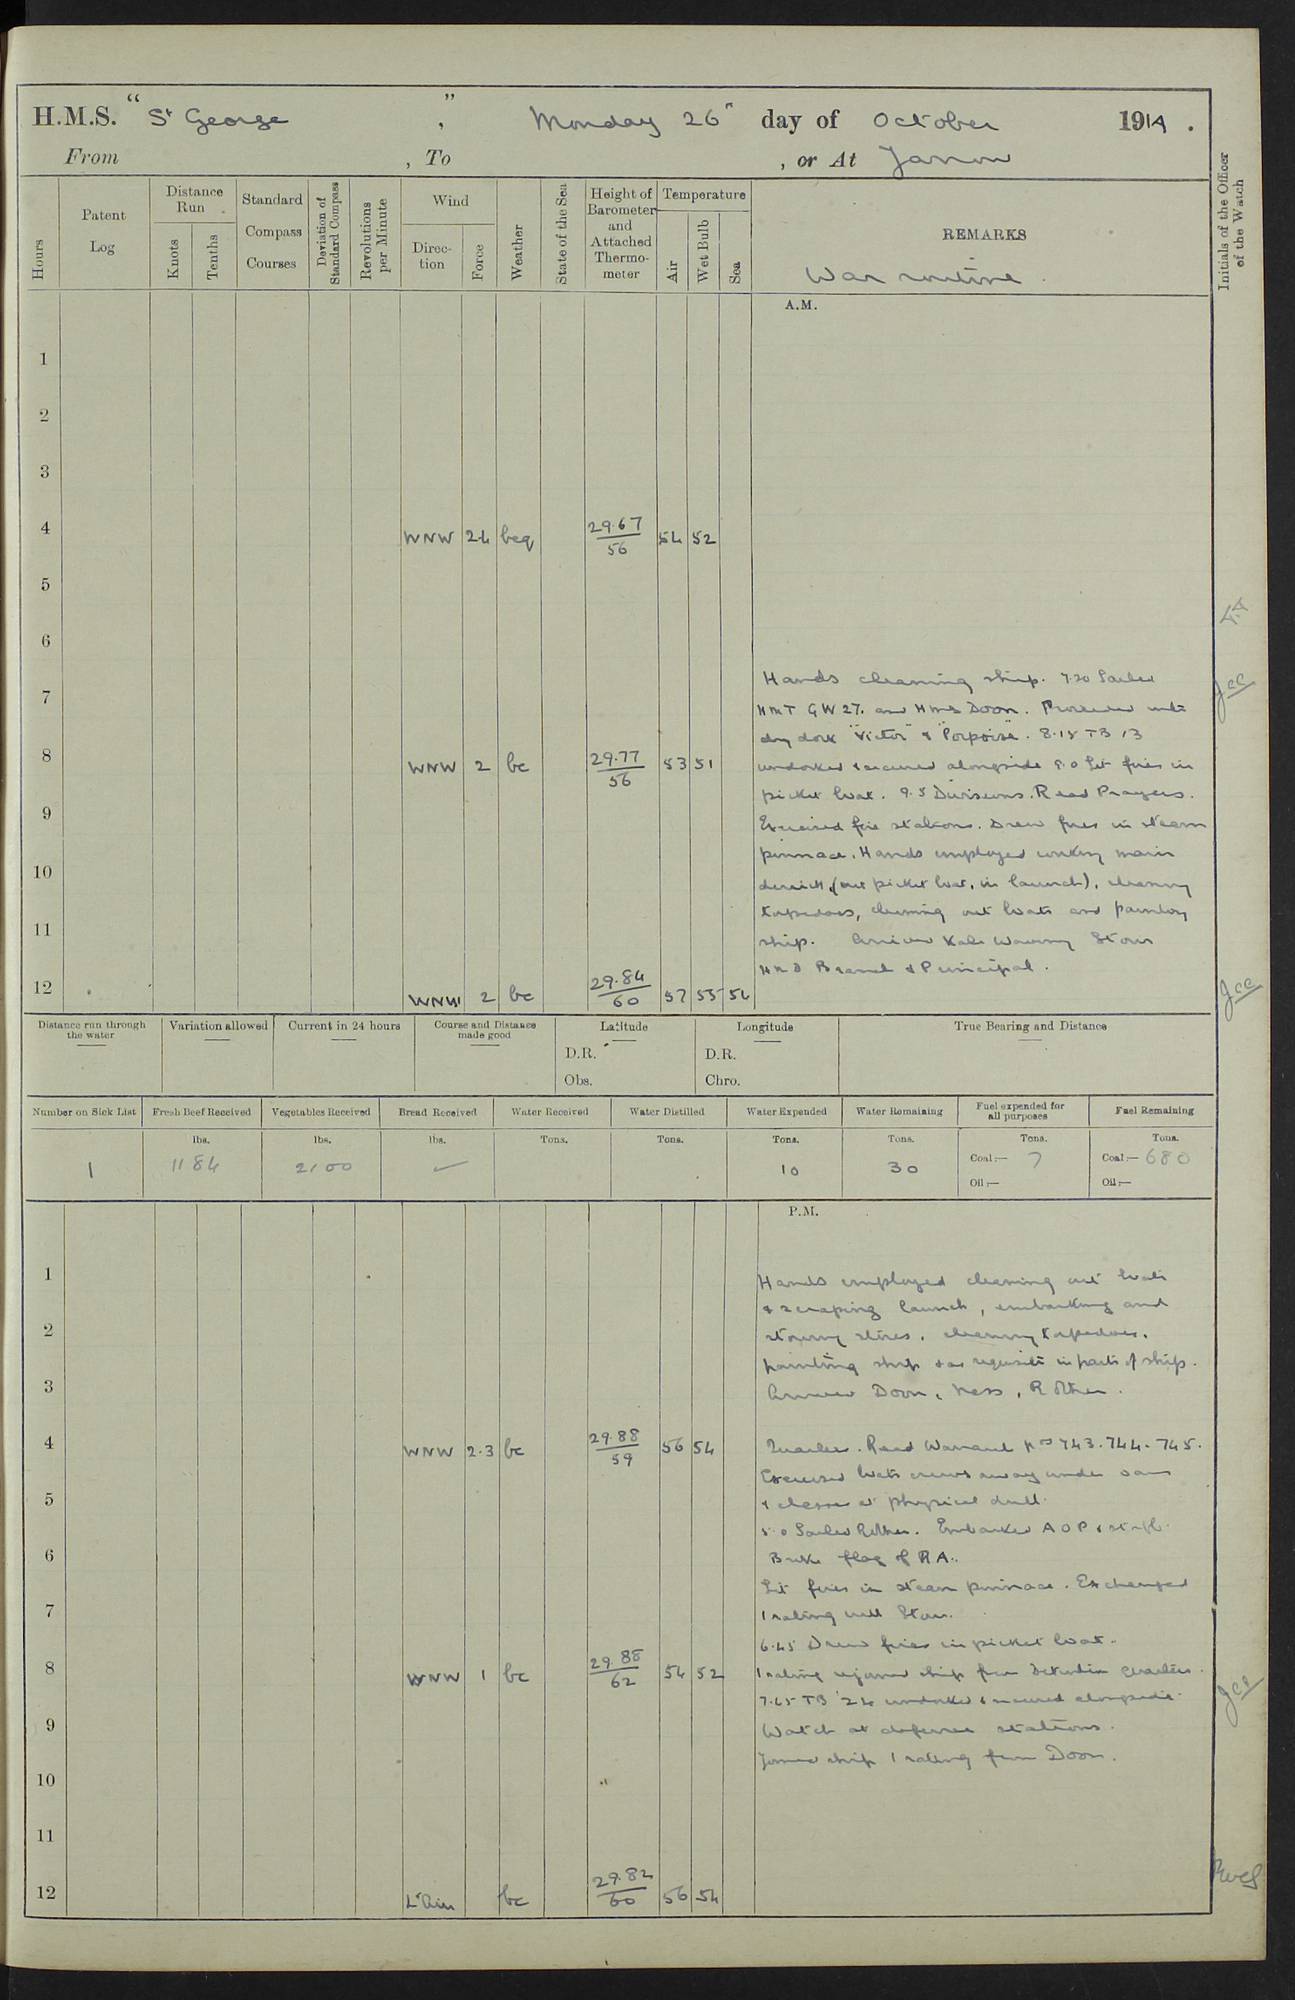 H.M.S. "St George", Monday 26th day of October 1914.
From , To , or At Jarrow
Hours
Patent Log
Distance Run
Knots
Tenths
Standard Compass Courses
Deviation of Standard Compass
Revolutions per Minute
Wind
Direction
Force
Weather
State of the Sea
Height of Barometer and Attached Thermometer
Temperature
Air
Wet Bulb
Sea
REMARKS
Initials of the Officer of the Watch
War routine
A.M.
1
2
3
4 WNW 2.4 bcq 29.67/56 54 52
5
6
Hands cleaning ship. 7.20 Sailed
7 HMT GW 27. and HMS Doon. Proceeded into
dry dock "Victor" & "Porpoise". 8.15 TB 13
8 WNW 2 bc 29.77/56 53 51
undocked & secured alongside 9.0 Lit fires in
picket boat. 9.5 Divisions. Read Prayers.
9
Exercised fire stations. Drew fires in steam
pinnace. Hands employed working main
10
derrick, (out picket boat, in launch), cleaning
torpedoes, cleaning out boats and painting
11
ship. Arrived Kale Waveney Stour
HMD Principal.
12 WNW 2 bc 29.84/60 57 55 54
Distance run through the water
Variation allowed
Current in 24 hours
Course and Distance made good
Latitude
D.R.
Obs.
Longitude
D.R.
Chro.
True Bearing and Distance
Number on Sick List
Fresh Beef Received
Vegetables Received
Bread Received
Water Received
Water Distilled
Water Expended
Water Remaining
Fuel expended for all purposes
Fuel Remaining
lbs. lbs. lbs. Tons. Tons. Tons. Tons. Tons. Tons.
1 1184 2100 ✓ 10 30 Coal:— 7 Coal:— 680
Oil:— Oil:—
P.M.
1 Hands employed cleaning out boats
& scraping launch, embarking and
2 stowing stores, cleaning torpedoes,
painting ship & as requisite in parts of ship.
3 Arrived Doon, Ness, Rother.
4 WNW 2.3 bc 29.88/59 56 54
Quarters. Read Warrant Nos 743. 744. 745.
Exercised boats crews away under oars
5 & classes at physical drill.
5.0 Sailed Rother. Embarked AOP & staff.
6 Broke flag of RA.
Lit fires in steam pinnace. Exchanged
7 1 rating with Stour.
6.45 Drew fires in picket boat.
8 WNW 1 bc 29.88/62 54 52
1 rating rejoined ship from Detention Quarters.
7.45 TB 24 undocked & secured alongside.
9 Watch at defence stations.
Joined ship 1 rating from Doon.
10
11
12 Lt Airs bc 29.82/60 56 54